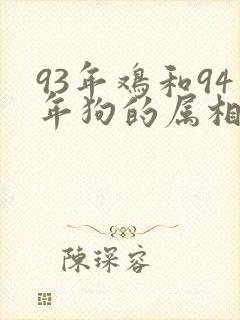 93年鸡和94
年狗的属相
陳琛容